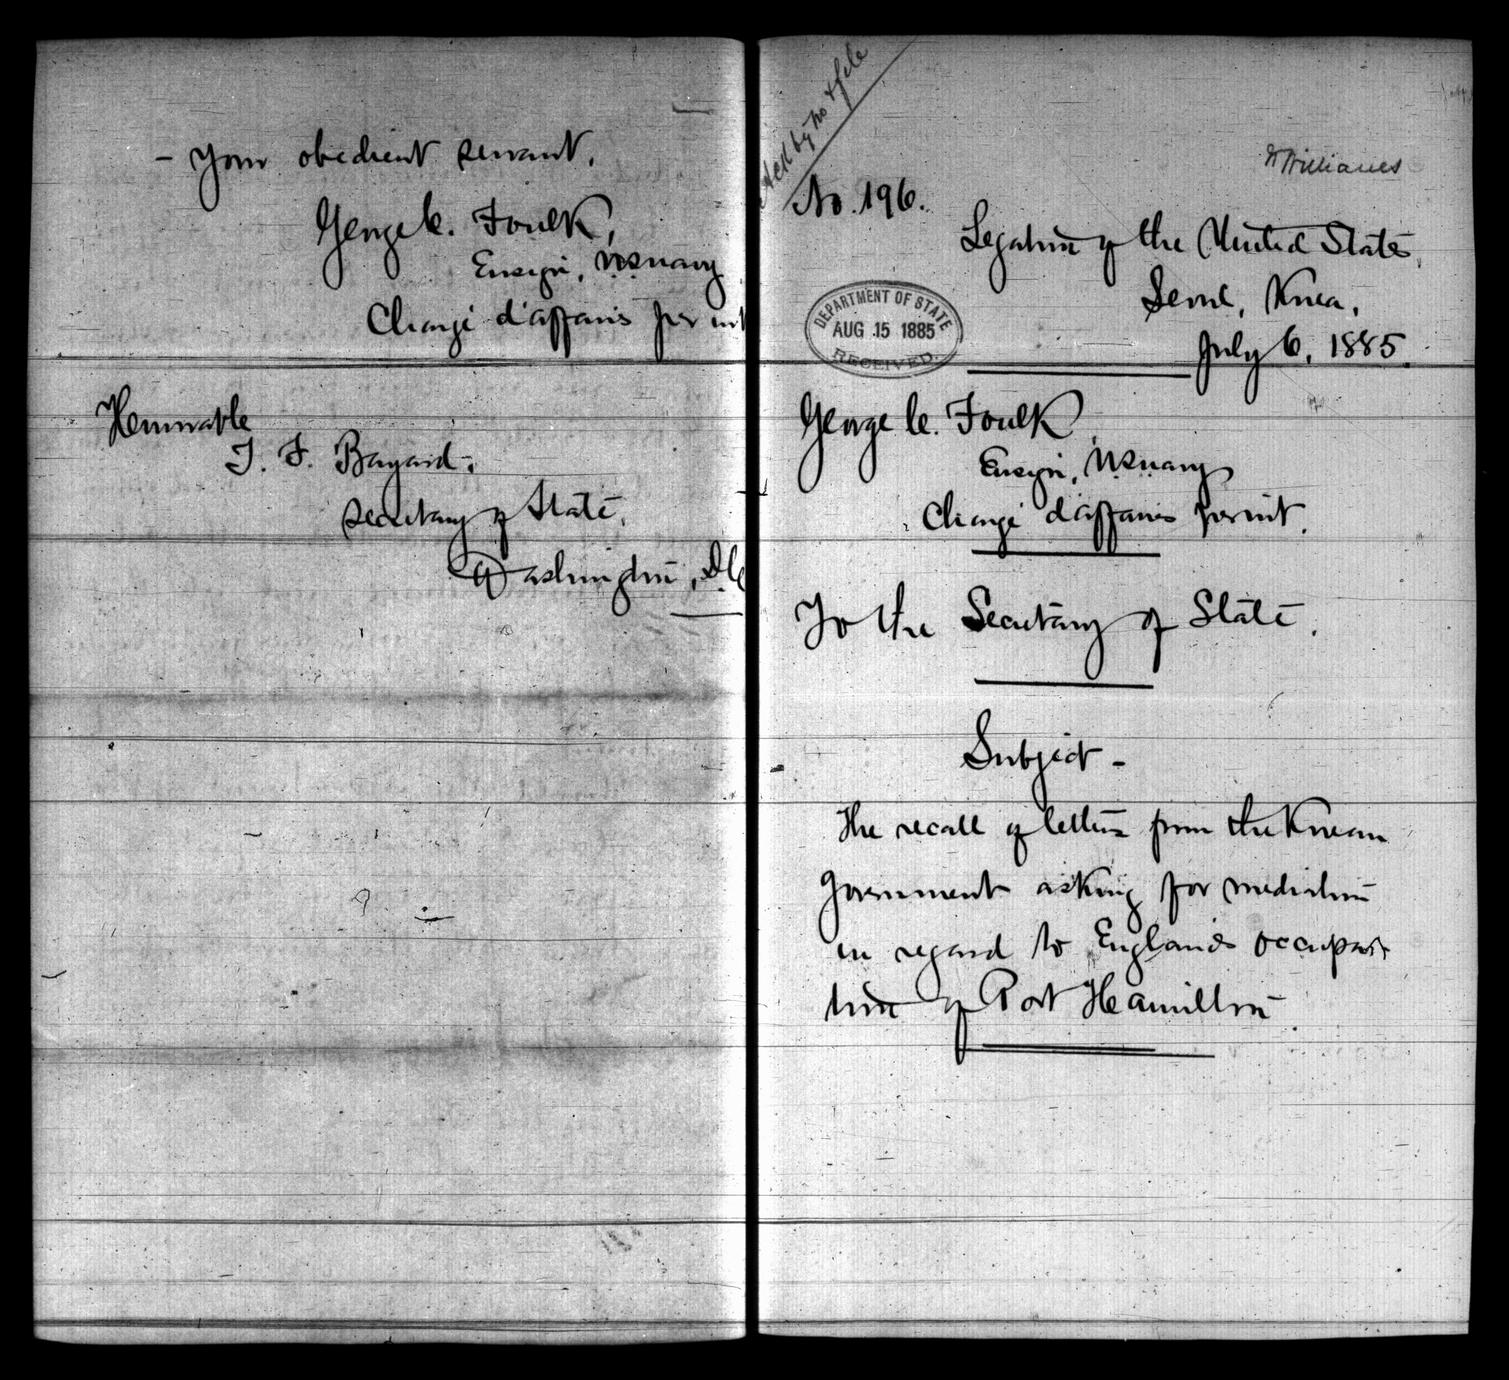 - Your obedient servant,
George C. Foulk,
Ensign, U.S. Navy
Chargé d'affaires per int
Honorable
T. F. Bayard,
Secretary of State,
Washington, D.C
Ack by no & file
W Williams
No. 196.
Legation of the United States,
Seoul, Korea,
July 6, 1885.
DEPARTMENT OF STATE
AUG 15 1885
RECEIVED
George C. Foulk
Ensign, U.S. Navy
Chargé d'affaires per int.
To the Secretary of State.
Subject -
The recall of letters from the Korean
Government asking for mediation
in regard to England's occupa-
tion of Port Hamilton